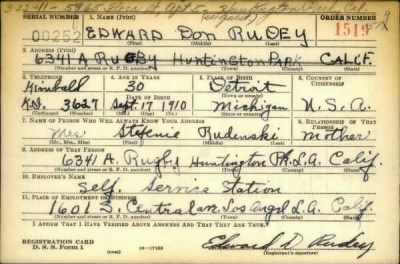 3-22-41-
SERIAL NUMBER 1. NAME (Print) ORDER NUMBER
00252 EDWARD Don RUDEY 1519
(First) (Middle) (Last)
2. ADDRESS (Print)
6341 A. RUGBY HUNTINGTON PARK CALIF.
(Number and street or R. F. D. number) (Town) (County) (State)
3. TELEPHONE 4. AGE IN YEARS 5. PLACE OF BIRTH 6. COUNTRY OF CITIZENSHIP
Kimball 30 Detroit
DATE OF BIRTH
KI. 3627 Sept. 17 1910 Michigan U.S.A.
7. NAME OF PERSON WHO WILL ALWAYS KNOW YOUR ADDRESS 8. RELATIONSHIP OF THAT PERSON
Mrs. Stefenie Rudinski Mother
(Mr., Mrs., Miss) (First) (Middle) (Last)
9. ADDRESS OF THAT PERSON
6341 A. Rugby Huntington Pk. L.A. Calif.
(Number and street or R. F. D. number) (Town) (County) (State)
10. EMPLOYER'S NAME
Self. Service Station
11. PLACE OF EMPLOYMENT OR BUSINESS
1601 S. Central av. Los Angel L.A. Calif.
(Number and street or R. F. D. number) (Town) (County) (State)
I AFFIRM THAT I HAVE VERIFIED ABOVE ANSWERS AND THAT THEY ARE TRUE.
REGISTRATION CARD
D. S. S. Form 1 Edward D. Rudey
(Registrant's signature)